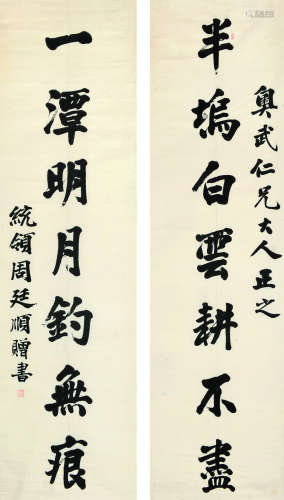 奧武仁兄大人正之
半塢白雲耕不盡
一潭明月釣無痕
統領周廷順贈書